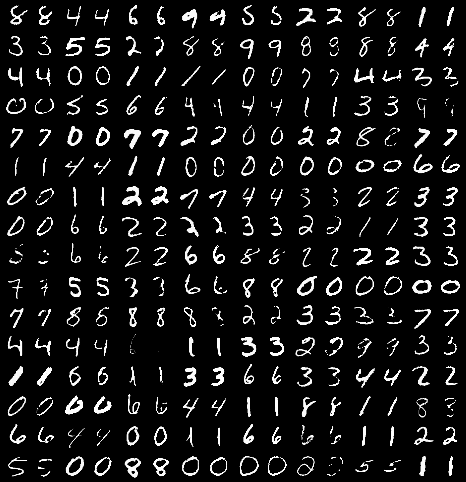 8 8 4 4 6 6 9 9 5 5 2 2 8 8 1 1
3 3 5 5 2 2 8 8 9 9 8 8 8 8 4 4
4 4 0 0 1 1 1 1 0 0 7 7 4 4 3 3
0 0 5 5 6 6 4 4 4 4 1 1 3 3 9 9
7 7 0 0 7 7 2 2 0 0 2 2 8 8 7 7
1 1 4 4 1 1 0 0 0 0 0 0 0 0 6 6
0 0 1 1 2 2 7 7 4 4 3 3 2 2 3 3
0 0 6 6 2 2 2 2 3 3 2 2 1 1 3 3
5 5 6 6 2 2 6 6 8 8 2 2 2 2 3 3
7 7 5 5 3 3 6 6 8 8 0 0 0 0 0 0
7 7 8 8 8 8 8 3 2 2 3 3 3 3 7 7
4 4 4 4 1 1 3 3 2 2 9 9 3 3
1 1 6 6 1 1 3 3 6 6 3 3 4 4 2 2
0 0 0 0 6 6 4 4 1 1 8 8 1 1 8 3
6 6 4 4 0 0 1 1 6 6 6 6 1 1 2 2
5 5 0 0 8 8 0 0 0 0 2 5 5 1 1